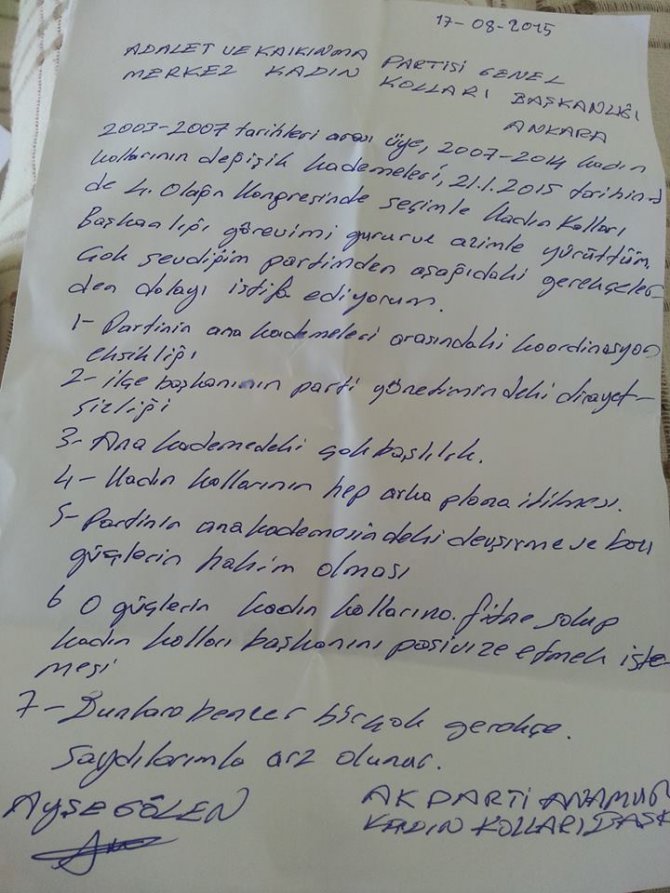 17-08-2015
ADALET VE KALKINMA PARTİSİ GENEL
MERKEZ KADIN KOLLARI BAŞKANLIĞI
ANKARA
2003-2007 tarihleri arası üye, 2007-2014 kadın
kollarının değişik kademeleri, 21.1.2015 tarihin-
de 4. Olağn Kongresinde seçimle Kadın Kolları
Başkanlığı görevimi gurur ve azimle yürüttüm.
Çok sevdiğim partimden aşağıdaki gerekçeler-
den dolayı istifa ediyorum.
1- Partinin ana kademeleri arasındaki koordinasyon
eksikliği
2- ilçe başkanının parti yönetimindeki dirayet-
sizliği
3- Ana kademedeki çok başlılık.
4- Kadın kollarının hep arka plana itilmesi.
5- Partinin ana kademesindeki devşirme ve bazı
güçlerin hakim olması
6 O güçlerin kadın kollarına fitne sokup
kadın kolları başkanını pasivize etmek iste-
mesi
7- Bunlara benzer birçok gerekçe.
Saygılarımla arz olunur.
AYŞE GÖLEN
AK PARTİ ANAMUR
KADIN KOLLARI BAŞK